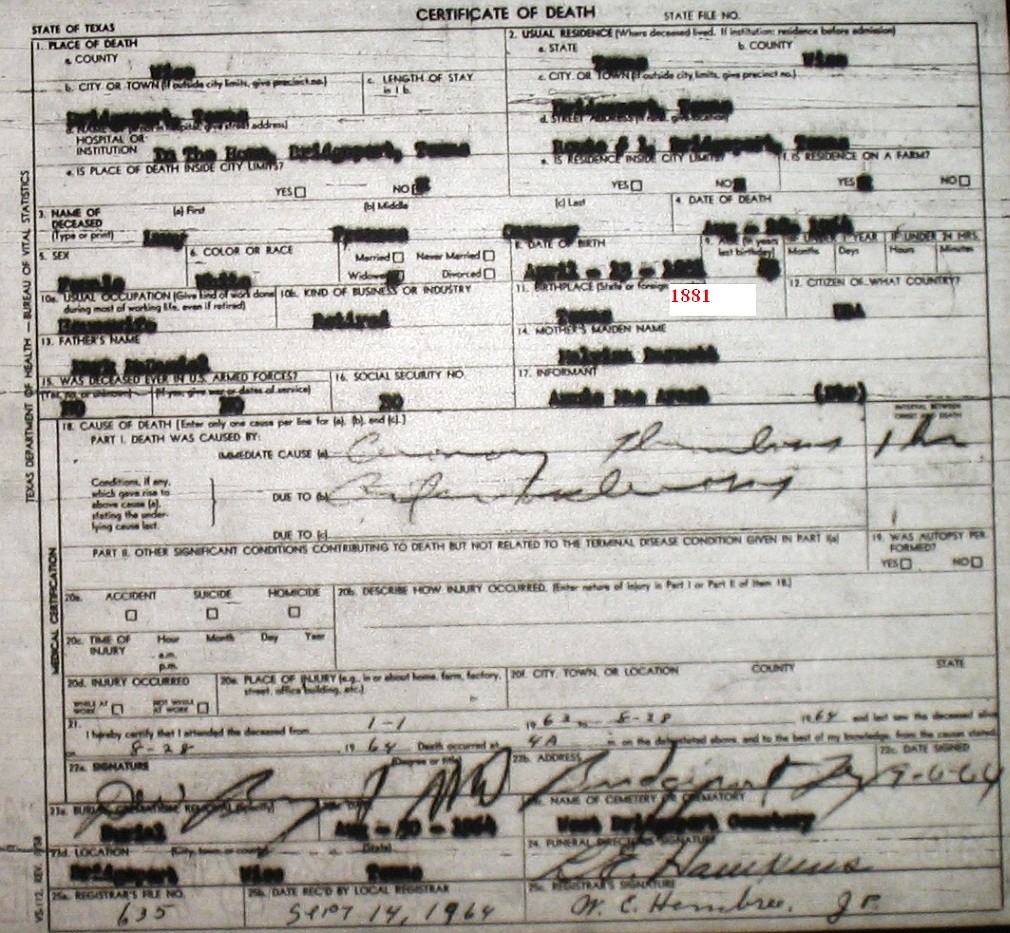 CERTIFICATE OF DEATH
STATE OF TEXAS STATE FILE NO.
1. PLACE OF DEATH
a. COUNTY
Wise
2. USUAL RESIDENCE (Where deceased lived. If institution: residence before admission)
a. STATE b. COUNTY
Texas Wise
b. CITY OR TOWN (If outside city limits, give precinct no.)
Bridgeport, Texas
c. LENGTH OF STAY
in 1 b.
c. CITY OR TOWN (If outside city limits, give precinct no.)
Bridgeport, Texas
d. NAME OF (If not in hospital, give street address)
HOSPITAL OR
INSTITUTION In The Home, Bridgeport, Texas
d. STREET ADDRESS (If rural, give location)
Route # 1, Bridgeport, Texas
e. IS PLACE OF DEATH INSIDE CITY LIMITS?
YES NO
e. IS RESIDENCE INSIDE CITY LIMITS?
YES NO
f. IS RESIDENCE ON A FARM?
YES NO
3. NAME OF
DECEASED
(Type or print)
(a) First (b) Middle (c) Last
4. DATE OF DEATH
Aug - 28 - 1964
5. SEX
Female
6. COLOR OR RACE
White
Married Never Married
Widowed Divorced
8. DATE OF BIRTH
April - 13 -
9. AGE (In years
last birthday)
IF UNDER 1 YEAR
Months Days
IF UNDER 24 HRS.
Hours Minutes
10a. USUAL OCCUPATION (Give kind of work done
during most of working life, even if retired)
Housewife
10b. KIND OF BUSINESS OR INDUSTRY
Retired
11. BIRTHPLACE (State or foreign
1881
Texas
12. CITIZEN OF WHAT COUNTRY?
USA
13. FATHER'S NAME
14. MOTHER'S MAIDEN NAME
15. WAS DECEASED EVER IN U.S. ARMED FORCES?
(Yes, no, or unknown) (If yes, give war or dates of service)
NO NO
16. SOCIAL SECURITY NO.
NO
17. INFORMANT
Annie Mae
18. CAUSE OF DEATH [Enter only one cause per line for (a), (b), and (c).]
INTERVAL BETWEEN
ONSET AND DEATH
PART I. DEATH WAS CAUSED BY:
IMMEDIATE CAUSE (a) Coronary Thrombosis 1 hr
Conditions, if any,
which gave rise to
above cause (a),
stating the under-
lying cause last.
DUE TO (b)
DUE TO (c)
PART II. OTHER SIGNIFICANT CONDITIONS CONTRIBUTING TO DEATH BUT NOT RELATED TO THE TERMINAL DISEASE CONDITION GIVEN IN PART I(a)
19. WAS AUTOPSY PER-
FORMED?
YES NO
20a. ACCIDENT SUICIDE HOMICIDE
20b. DESCRIBE HOW INJURY OCCURRED. (Enter nature of injury in Part I or Part II of Item 18.)
20c. TIME OF
INJURY
Hour Month Day Year
a.m.
p.m.
20d. INJURY OCCURRED
WHILE AT
WORK
NOT WHILE
AT WORK
20e. PLACE OF INJURY (e.g., in or about home, farm, factory,
street, office building, etc.)
20f. CITY, TOWN, OR LOCATION COUNTY STATE
21.
I hereby certify that I attended the deceased from 1-1 1963 to 8-28 1964 and last saw the deceased alive
on 8-28 1964 Death occurred at 4A m. on the date stated above, and to the best of my knowledge, from the causes stated.
22a. SIGNATURE (Degree or title)
MD
22b. ADDRESS
Bridgeport
22c. DATE SIGNED
9-6-64
23a. BURIAL, CREMATION, REMOVAL (Specify)
Burial
23b. DATE
Aug - 30 - 1964
23c. NAME OF CEMETERY OR CREMATORY
West Bridgeport Cemetery
23d. LOCATION (City, town or county) (State)
Bridgeport Wise Texas
24. FUNERAL DIRECTOR'S SIGNATURE
Hawkins
25a. REGISTRAR'S FILE NO.
635
25b. DATE REC'D BY LOCAL REGISTRAR
Sept 14, 1964
25c. REGISTRAR'S SIGNATURE
W. E. Hembree, J P.
TEXAS DEPARTMENT OF HEALTH — BUREAU OF VITAL STATISTICS
MEDICAL CERTIFICATION